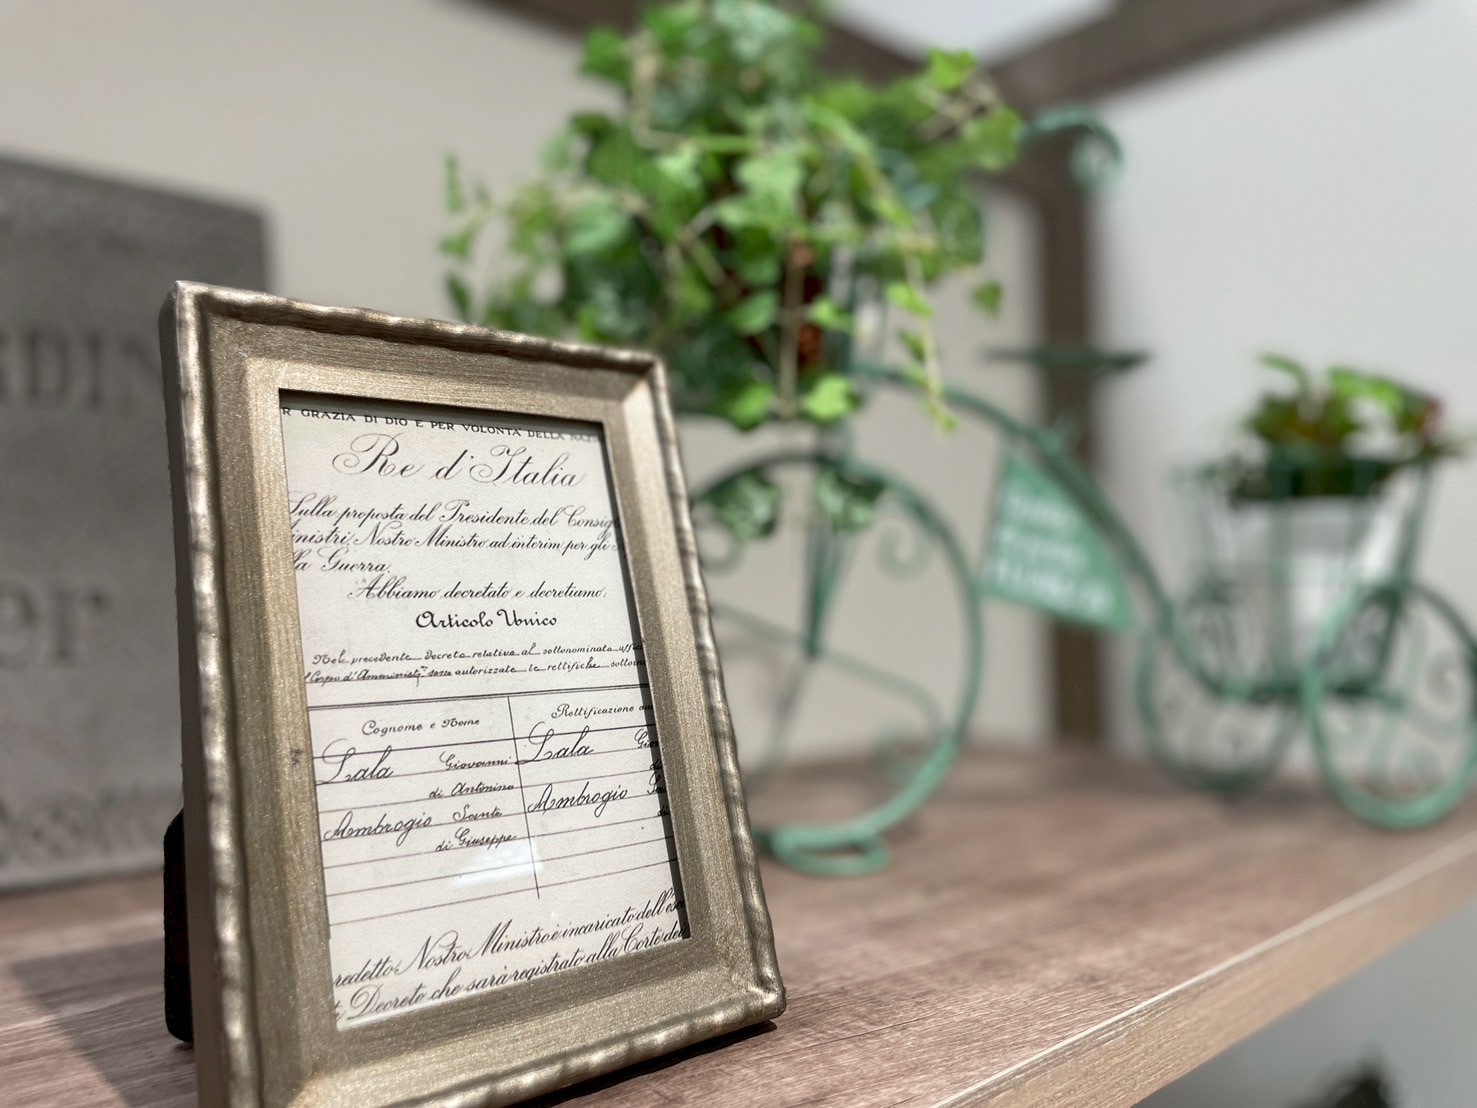 R GRAZIA DI DIO E PER VOLONTÀ DELLA NAZ
Re d'Italia
Sulla proposta del Presidente del Consig
inistri, Nostro Ministro ad interim per gli
la Guerra.
Abbiamo decretato e decretiamo:
Articolo Unico
Nel precedente decreto relativo al sottonominato uffic
Corpo d'Amministr.ne sono autorizzate le rettifiche sottoin
Cognome e Nome Rettificazione
Lala Giovanni Lala Giov
di Antonino di
Ambrogio Santo Ambrogio
di Giuseppe di
redetto Nostro Ministro è incaricato dell'es
Decreto che sarà registrato alla Corte dei
RDIN
er